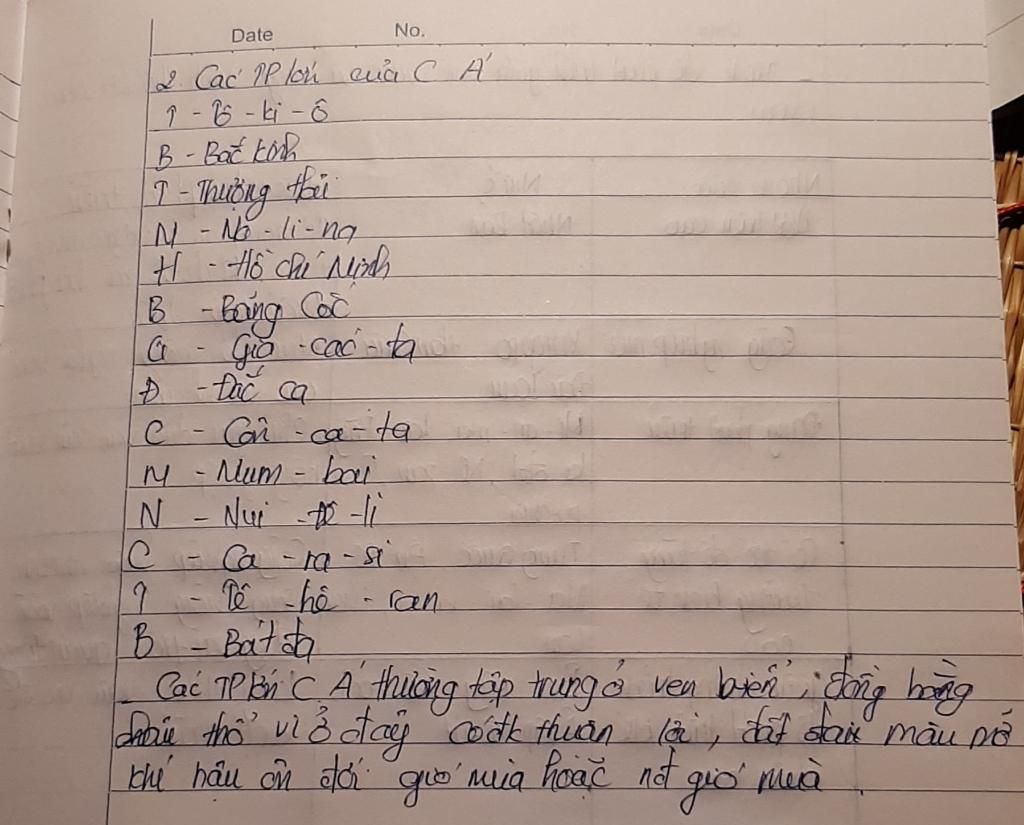 Date No.
2. Các TP lớn của C Á
T - Tô - ki - ô
B - Bắc Kinh
T - Thượng Hải
M - Ma - li - na
H - Hồ Chí Minh
B - Băng Cốc
G - Gia - các - ta
Đ - Đắc ca
C - Côn - ca - ta
M - Mum - bai
N - Niu - Đê - li
C - Ca - ra - si
T - Tê - hê - ran
B - Bát đa
Các TP lớn C Á thường tập trung ở ven biển, đồng bằng
châu thổ vì ở đây có đk thuận lợi, đất đai màu mỡ
khí hậu ôn đới gió mùa hoặc nđ gió mùa.